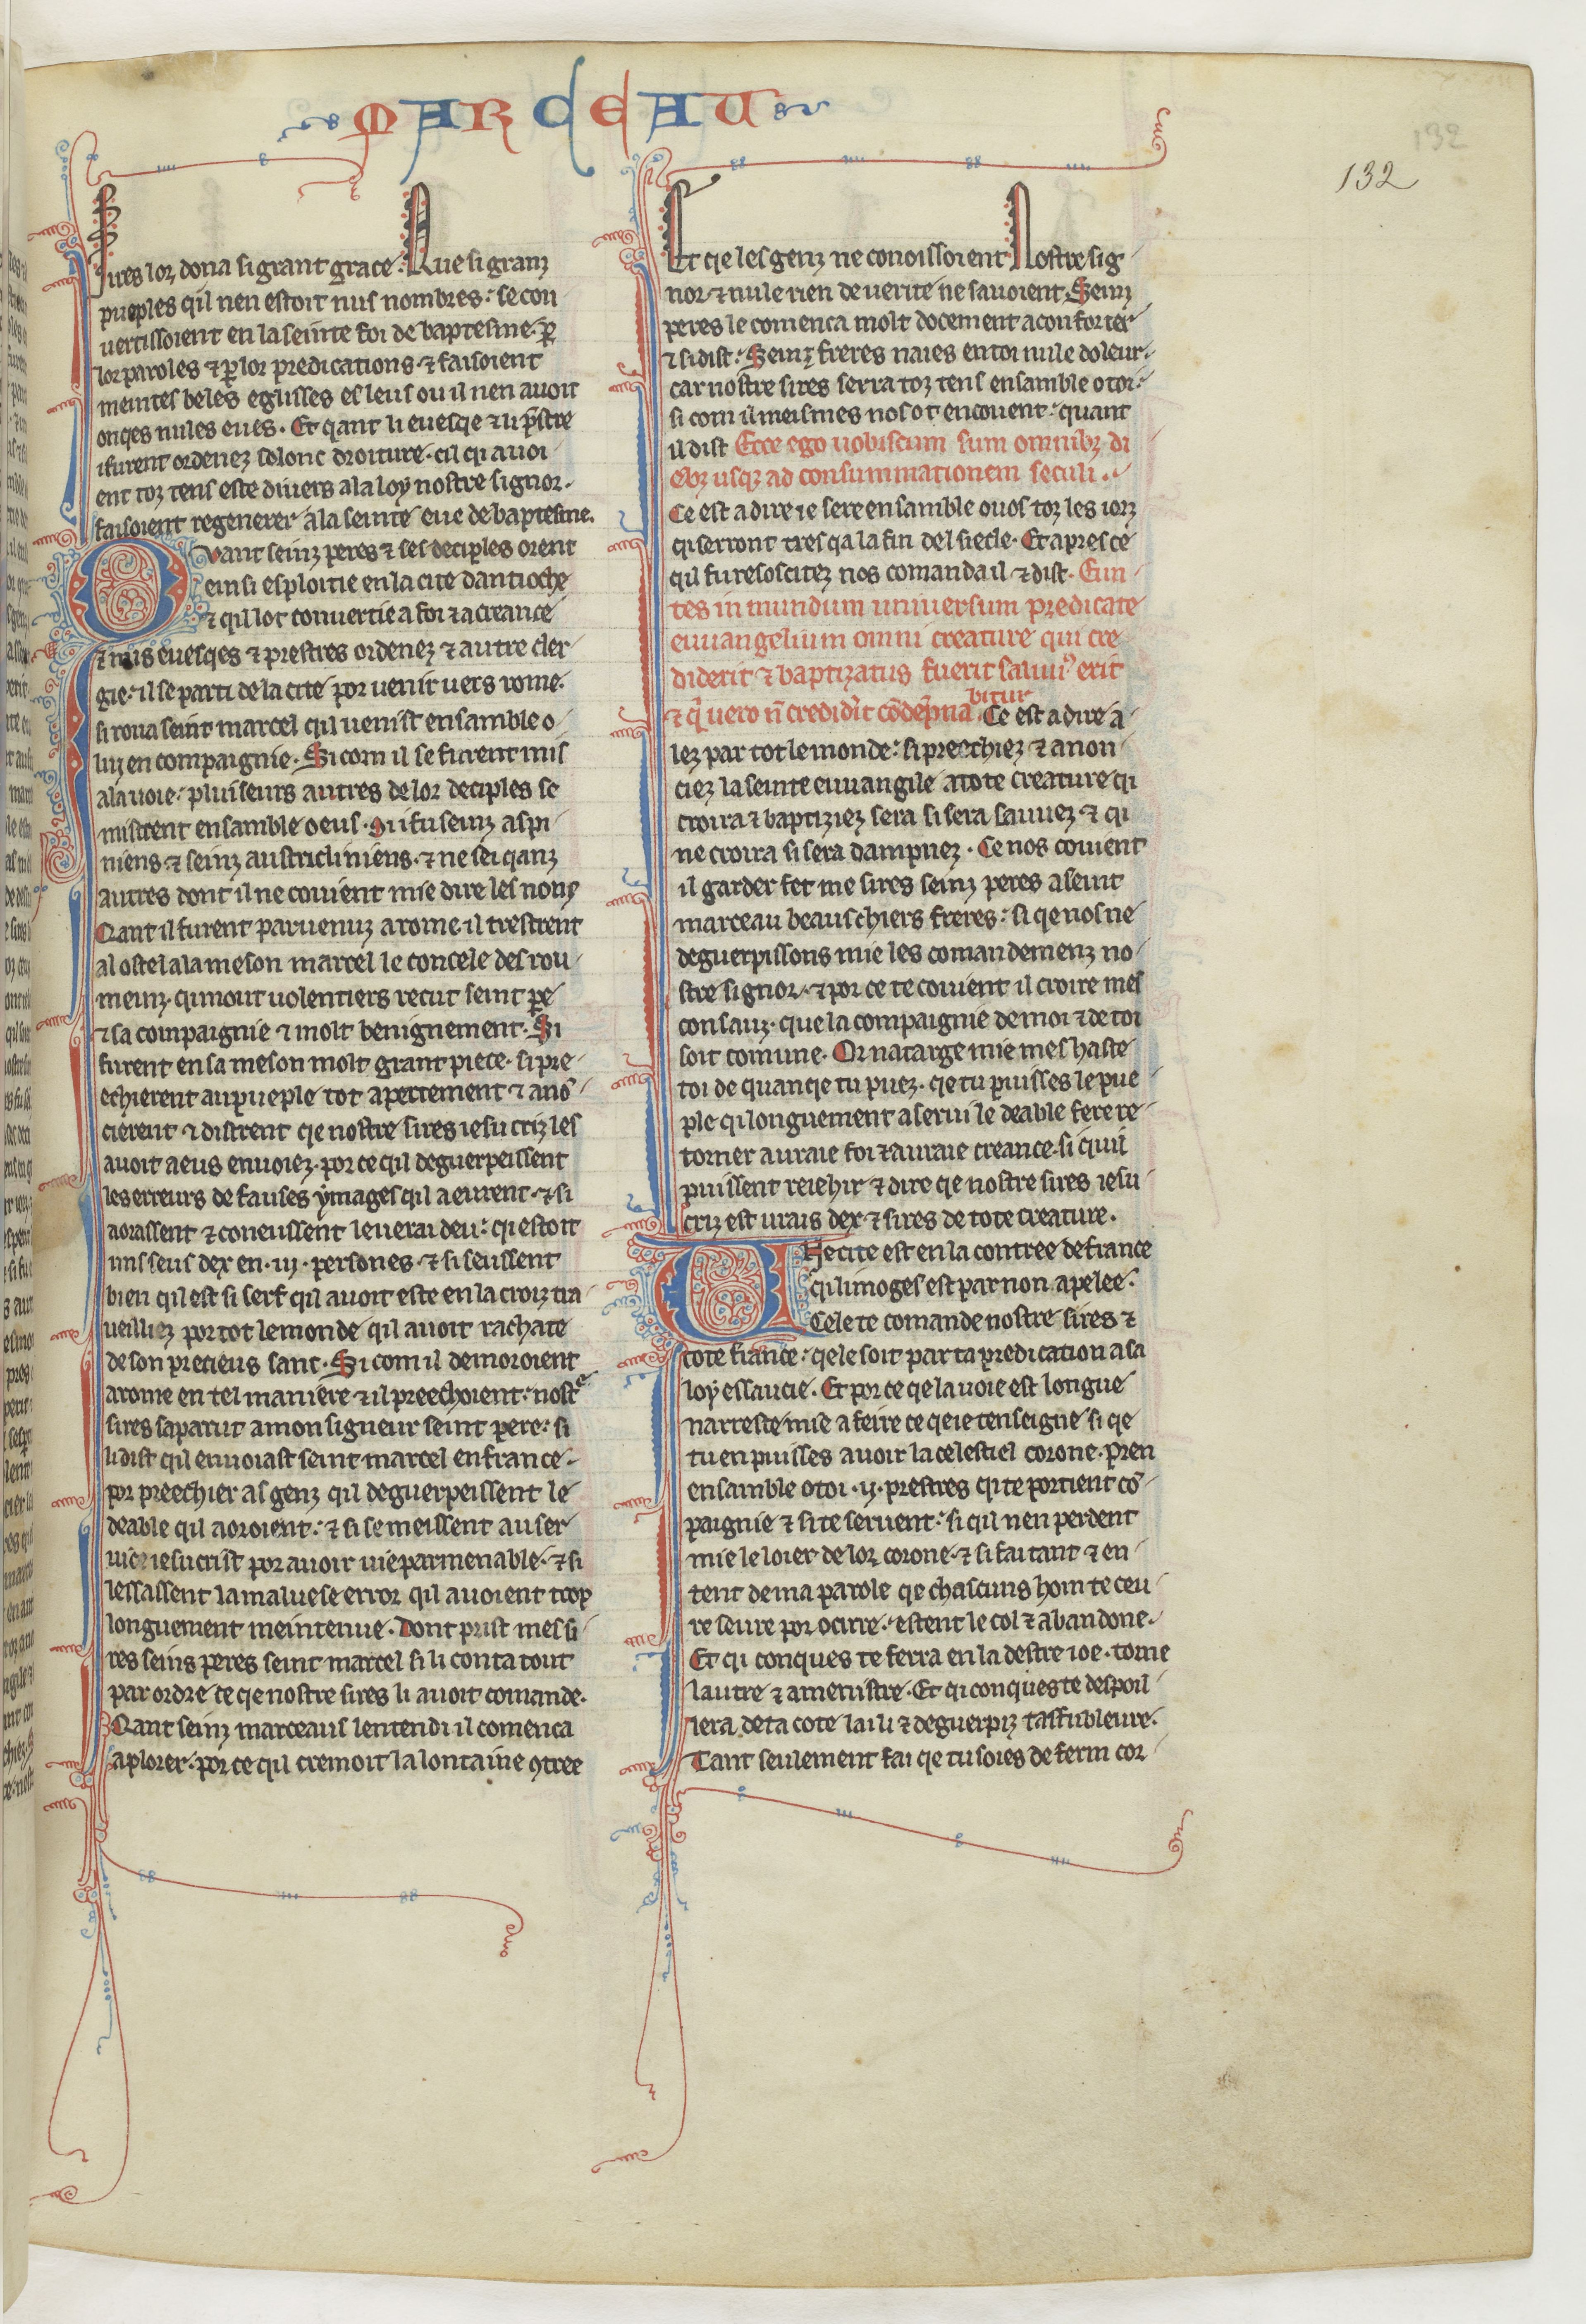 MARCEAU
132
132
Iures lor dona si grant grace. Que si granz
pueples qil nen estoit nus nombres: se con
uertissoient en la seinte foi de baptesme. p
lor paroles ⁊ p lor predications. ⁊ faisoient
meintes beles eglisses es leus ou il nen auoit
onqes nules eues. Et qant li euesqe ⁊ li pstre
i furent ordenez solonc droiture. cil qi auoi
ent toz tens este diuers a la loy nostre signor.
faisoient regenerer a la seinte eue de baptesme.
Quant seinz peres ⁊ ses deciples orent
einsi esploitie en la cite dantioche
⁊ qil lot conuertie a foi ⁊ a creance
⁊ mis euesqes ⁊ prestres ordenez ⁊ autre cler
gie: il se parti de la cite por uenir uers rome.
si roua seint marcel qil uenist ensamble o
luy en compaignie. Si com il se furent mis
a la uoie: pluiseurs autres de lor deciples se
mistrent ensamble o eus. Qui fu seinz aspi
niens. ⁊ seinz austricliniens. ⁊ ne sei qanz
autres dont il ne couient mie dire les nons
Qant il furent paruenuz a rome. il trestrent
al ostel a la meson marcel le concele des rou
meinz. qi mout uolentiers recut seint pe
⁊ sa compaignie ⁊ molt benignement. Si
furent en sa meson molt grant piece. si pre
echierent au pueple tot apertement ⁊ ano
cierent ⁊ distrent qe nostre sires iesu criz les
auoit a eus enuoiez. por ce qil deguerpeissent
les erreurs de fauses ymages qil aeurent. ⁊ si
aorassent ⁊ coneussent le uerai deu: qi estoit
uns seus dex en .iij. persones. ⁊ si seussent
bien qil est si serf qil auoit este en la croiz tra
ueilliez por tot le monde qil auoit rachate
de son precieus sanc. Si com il demoroient
a rome en tel maniere ⁊ il preechoient: nostre
sires saparut a mon signeur seint pere: si
li dist qil enuoiast seint marcel en france.
por preechier as genz qil deguerpeissent le
deable qil aoroient: ⁊ si se meissent au ser
uice iesucrist por auoir uie parmenable. ⁊ si
lessassent la maluese error qil auoient trop
longuement meintenue. Dont prist mes si
res seins peres seint marcel si li conta tout
par ordre ce qe nostre sires li auoit comande.
Qant seinz marceaus lentendi il comenca
a plorer. por ce qil cremoit la lontaine 9tree
Et qe les genz ne conoissoient Nostre sig
nor. ⁊ nule rien de uerite ne sauoient. Seinz
peres le comenca molt docement a conforter
⁊ si dist: Seinz freres naies en toi nule doleur.
car nostre sires serra toz tens ensamble o toi:
si com il meismes nos ot encouent: quant
il dist Ecce ego uobiscum sum omnibz di
ebz usqz ad consummationem seculi.
Ce est a dire ie sere ensamble o uos toz les iorz
qi serront tres qa la fin del siecle. Et apres ce
qil fu resoscitez nos comanda il ⁊ dist. Eun
tes in mundum uniuersum predicate
euuangelium omni creature qui cre
diderit ⁊ baptizatus fuerit saluus erit
⁊ q uero n crediderit codepna bitur Ce est a dire a
lez par tot le monde: si preechiez ⁊ anon
ciez la seinte euuangile a tote creature qi
croira ⁊ baptiziez sera si sera sauuez. ⁊ qi
ne croira si sera dampnez. Ce nos couient
il garder fet me sires seinz peres a seint
marceau beaus chiers freres: si qe nos ne
deguerpissons mie les comandemenz no
stre signor. ⁊ por ce te couient il croire mes
consauz. que la compaignie de moi ⁊ de toi
soit comune. Or natarge mie mes haste
toi de quanqe tu puez. qe tu puisses le pue
ple qi longuement a serui le deable fere re
torner a uraie foi ⁊ a uraie creance. si quil
puissent reiehir ⁊ dire qe nostre sires iesu
criz est urais dex ⁊ sires de tote creature.
Une cite est en la contree de france
qi limoges est par non apelee.
Cele te comande nostre sires ⁊
tote france: qele soit par ta predication a sa
loy essaucie. Et por ce qe la uoie est longue
narreste mie a feire ce qe ie tenseigne si qe
tu en puisses auoir la celestiel corone. pren
ensamble o toi .ij. prestres qi te portient co
paignie ⁊ si te seruent: si qil nen perdent
mie le loier de lor corone. ⁊ si fai tant ⁊ en
tent de ma parole qe chascuns hom te ceu
re seure por ocirre. estent le col ⁊ abandone.
Et qi conques te ferra en la destre ioe. torne
lautre ⁊ amenistre. Et qi conques te despoil
lera de ta cote lai li ⁊ deguerpiz taffubleure.
Tant seulement fai qe tu soies de ferm cor